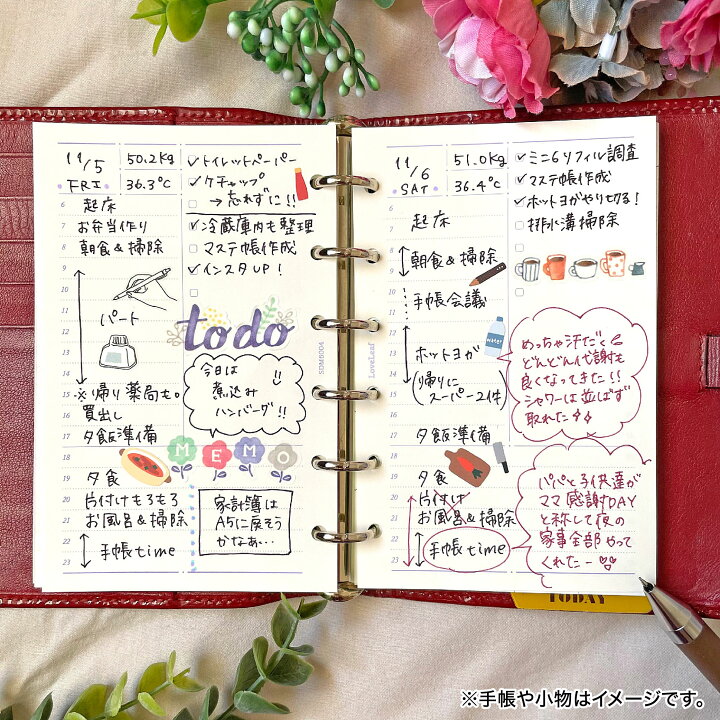 11/5
FRI
50.2kg
36.3℃
6
7
8
9
10
11
12
13
14
15
16
17
18
19
20
21
22
23
起床
お弁当作り
朝食&掃除
パート
※帰り薬局も。
買出し
夕飯準備
夕食
片付けもろもろ
お風呂&掃除
手帳time
✓トイレットペーパー
✓ケチャップ
→忘れずに!!
✓冷蔵庫内も整理
マステ帳作成
✓インスタUP!
todo
今日は
煮込み
ハンバーグ!!
MEMO
家計簿は
A5に戻そう
かなぁ…
SDM5004
LoveLeaf
11/6
SAT
51.0kg
36.4℃
6
7
8
9
10
11
12
13
14
15
16
17
18
19
20
21
22
23
起床
朝食&掃除
手帳会議
ホットヨガ
(帰りに
スーパー2件)
夕飯準備
夕食
片付け
お風呂&掃除
手帳time
✓ミニ6リフィル調査
✓マステ帳作成
✓ホットヨガやり切る!
排水溝掃除
water
めっちゃ汗だく
どんどん代謝も
良くなってきた!!
シャワーは並ばず
取れた
パパと子供達が
ママ感謝DAY
と称して夜の
家事全部やって
くれたー♡♡
TODAY
※手帳や小物はイメージです。